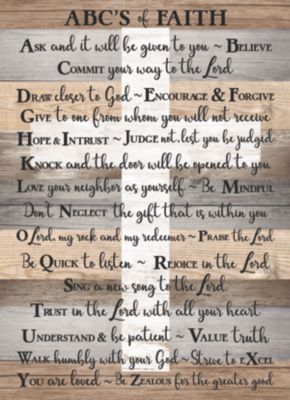 ABC'S of FAITH
ASK and it will be given to you ~ BELIEVE
COMMIT your way to the Lord
DRAW closer to God ~ ENCOURAGE & FORGIVE
GIVE to one from whom you will not receive
HOPE & INTRUST ~ JUDGE not, lest you be judged
KNOCK and the door will be opened to you
LOVE your neighbor as yourself ~ Be MINDFUL
Don't NEGLECT the gift that is within you
O Lord, my rock and my redeemer ~ PRAISE the Lord
Be QUICK to listen ~ REJOICE in the Lord
SING a new song to the Lord
TRUST in the Lord with all your heart
UNDERSTAND & be patient ~ VALUE truth
WALK humbly with your God ~ Strive to eXCEL
YOU are loved ~ Be ZEALOUS for the greater good